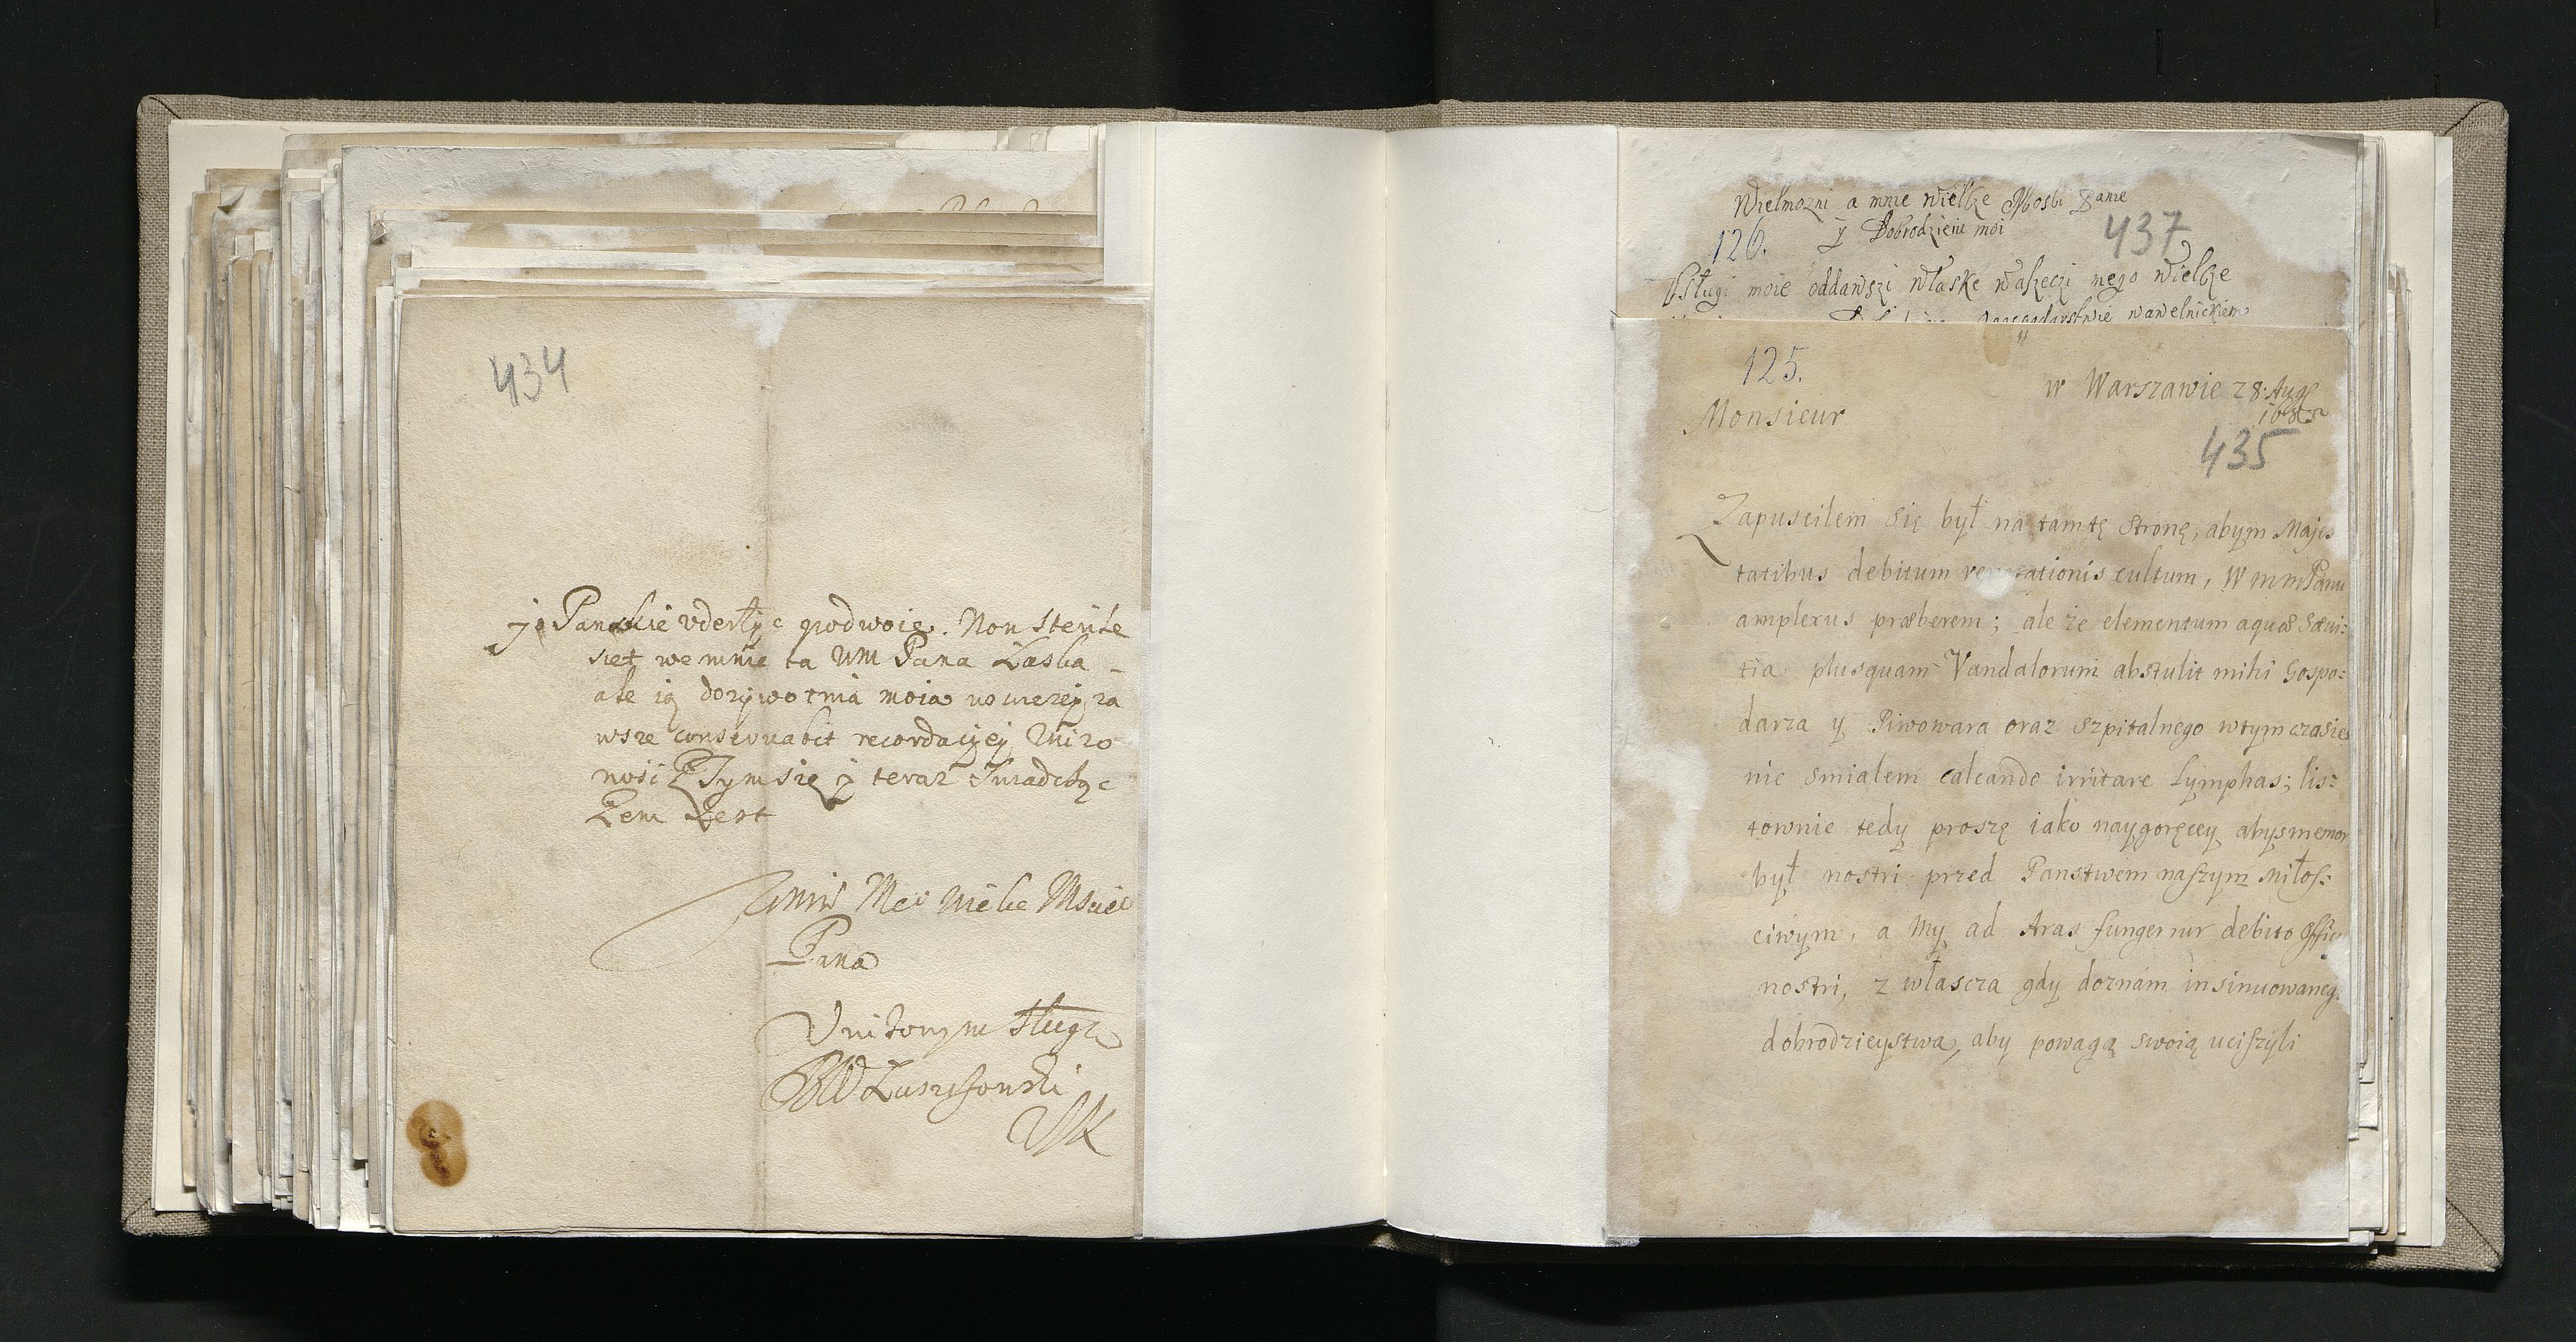 434
y Panskie
Non sterile
siet we mnie ta WM Pana Laska
ale ią dozywotnia moia
wsze conservabit recordacyey
nosci Z Tym się y teraz
Zem Iest
Pana
Vnizonym sługą
437
Wielmozni a mnie wielze Mosbi Panie
126. y Dobrodzieiu moi
Vsługi moie oddawszi właske waszeczi nego wielze
wawelnickiem
125.
w Warszawie 28. Aug
Monsieur
435
Zapuscilem się był na tamtę stronę, abym Majes
tatibus debitum cultum, W m m Panu
amplexus præberem; ale że elementum aquæ sævi:
tia plusquam Vandalorum abstulit mihi Gospo:
darza y Piwowara oraz szpitalnego wtym czasie
nie smialem calcando irritare Lymphas; lis:
townie tedy proszę iako naygoręcey abys memor
był nostri przed Panstwem naszym Miłos:
ciwym, a My ad Aras fungemur debito Offic
nostri, z włascza gdy doznam insinuowaneg
dobrodzieystwa, aby powagą swoią uciszyli